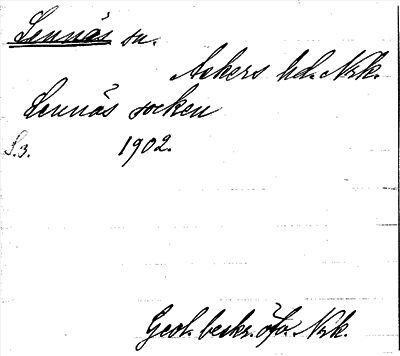 Lennäs sn.
Askers hd. Nrk.
Lennäs socken
S. 3. 1902.
Geol. beskr. öfv. Nrk.